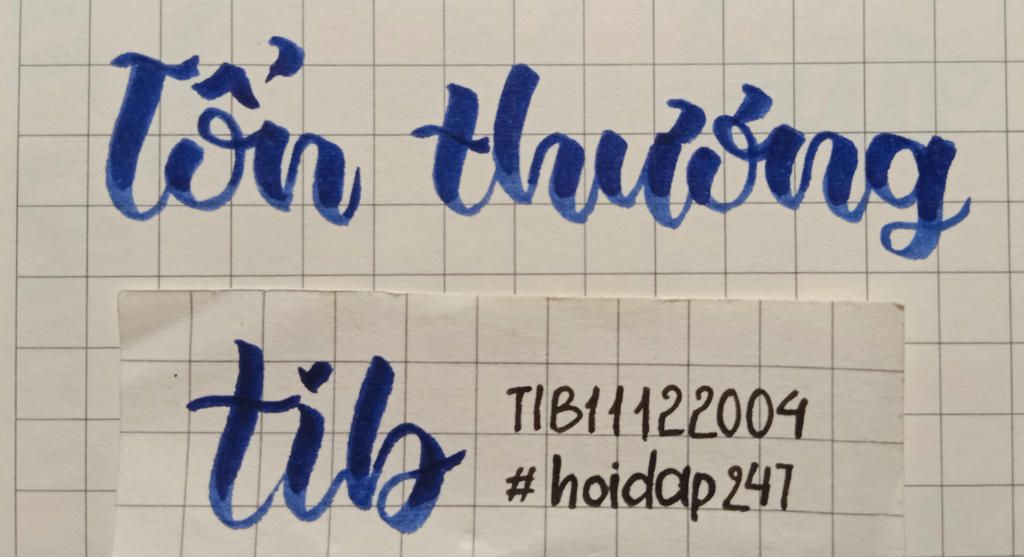 Tổn thương
tib
TIB11122004
#hoidap247